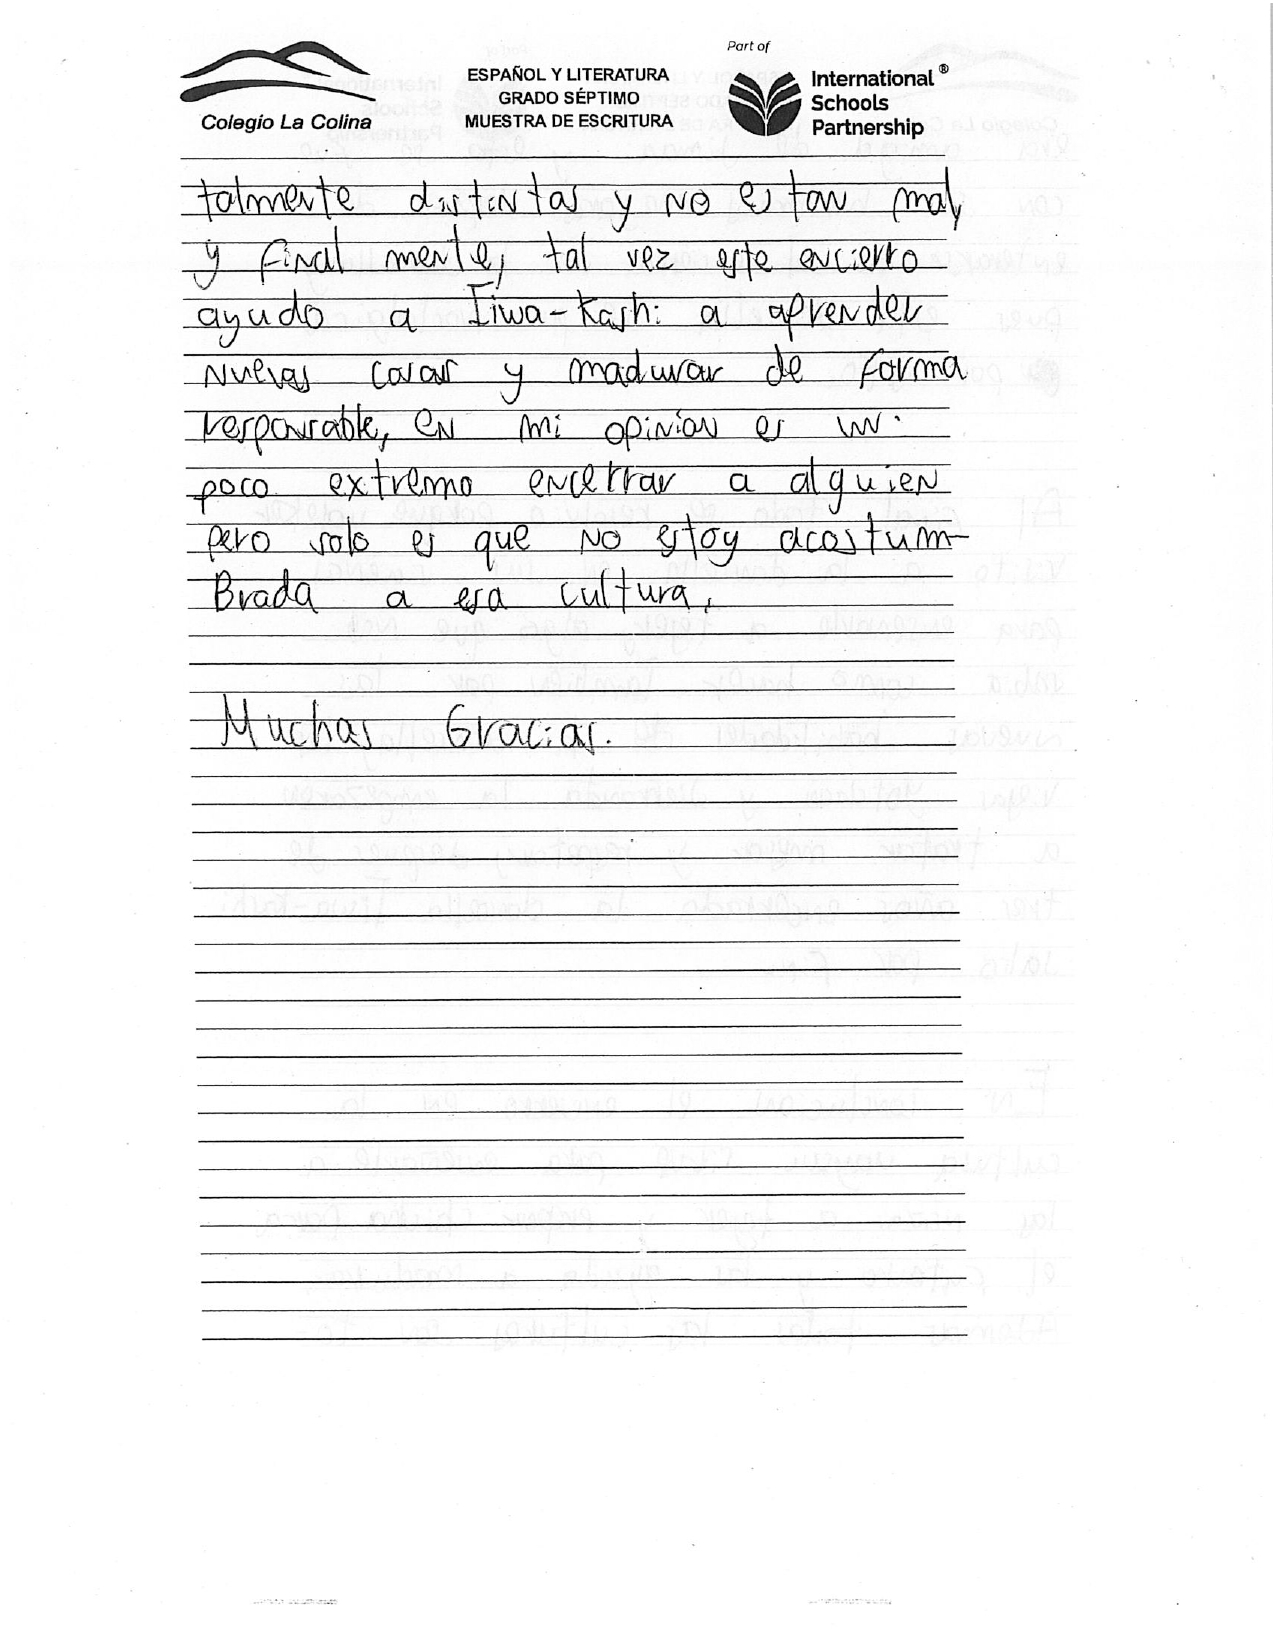 Part of
ESPAÑOL Y LITERATURA
GRADO SÉPTIMO
MUESTRA DE ESCRITURA
Colegio La Colina
International ®
Schools
Partnership
talmente distintas y no estan mal,
y final mente, tal vez este encierro
ayudo a Iiwa-Kashi a aprender
nuevas cosas y madurar de forma
responsable, en mi opinion es un
poco extremo encerrar a alguien
pero solo es que no estoy acostum-
Brada a esa cultura.
Muchas Gracias.